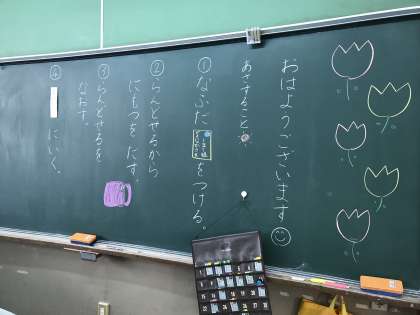 おはようございます
あさすること
①なふだをつける。
②らんどせるから
にもつを だす。
③らんどせるを
なおす。
④ にいく。